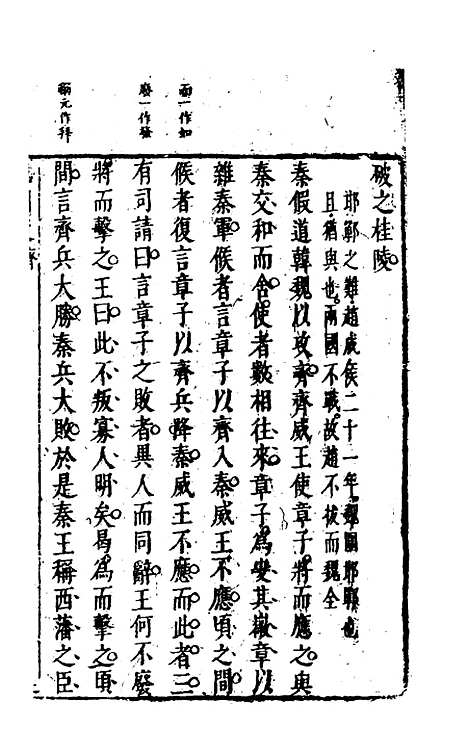 破之桂陵
邯鄲之難趙成侯二十一年魏圍邯鄲也
且猶與也兩國不戰故趙不拔而魏全
秦假道韓魏以攻齊齊威王使章子將而應之與
秦交和而舍使者數相往來章子為變其徽章以
雜秦軍候者言章子以齊入秦威王不應頃之間
候者復言章子以齊兵降秦威王不應而此者三
有司請曰言章子之敗者異人而同辭王何不廢
將而擊之王曰此不叛寡人明矣曷為而擊之頃
間言齊兵大勝秦兵大敗於是秦王稱西藩之臣
而一作如
廢一作發
稱元作拜